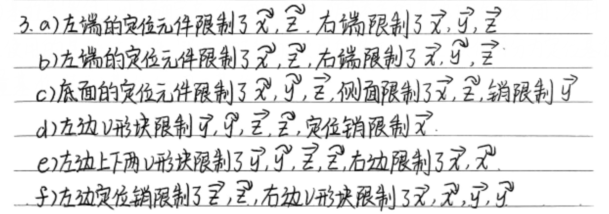 3. a)左端的定位元件限制了x̂, ẑ. 右端限制了x⃗, y⃗, z⃗
b)左端的定位元件限制了x̂, ẑ, 右端限制了x⃗, ŷ, z⃗
c)底面的定位元件限制了x̂, ŷ, z⃗, 侧面限制了x⃗, ẑ, 销限制y⃗
d)左边V形块限制y⃗, ŷ, z⃗, ẑ, 定位销限制x⃗.
e)左边上下两V形块限制了y⃗, ŷ, z⃗, ẑ, 右边限制了x⃗, x̂.
f)左边定位销限制了z⃗, ẑ, 右边V形块限制了x⃗, x̂, y⃗, ŷ